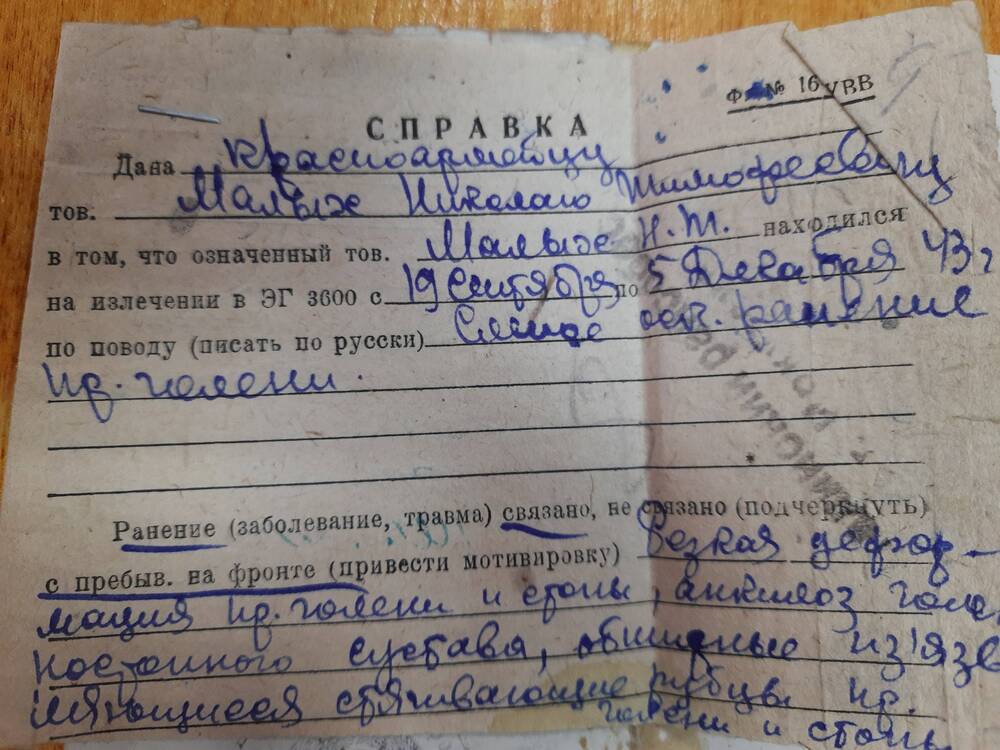 Ф. № 16 УВВ
СПРАВКА
Дана Красноармейцу
тов. Малых Николаю Тимофеевичу
в том, что означенный тов. Малых Н.Т. находился
на излечении в ЭГ 3600 с 19 Сентября по 5 Декабря 43 г
по поводу (писать по русски) Слепое оск. ранение
пр. голени.
Ранение (заболевание, травма) связано, не связано (подчеркнуть)
с пребыв. на фронте (привести мотивировку) Резкая дефор-
мация пр. голени и стопы, анкилоз голе
ностопного сустава, обширные из'язв
ляющиеся стягивающие рубцы пр.
голени и стопы